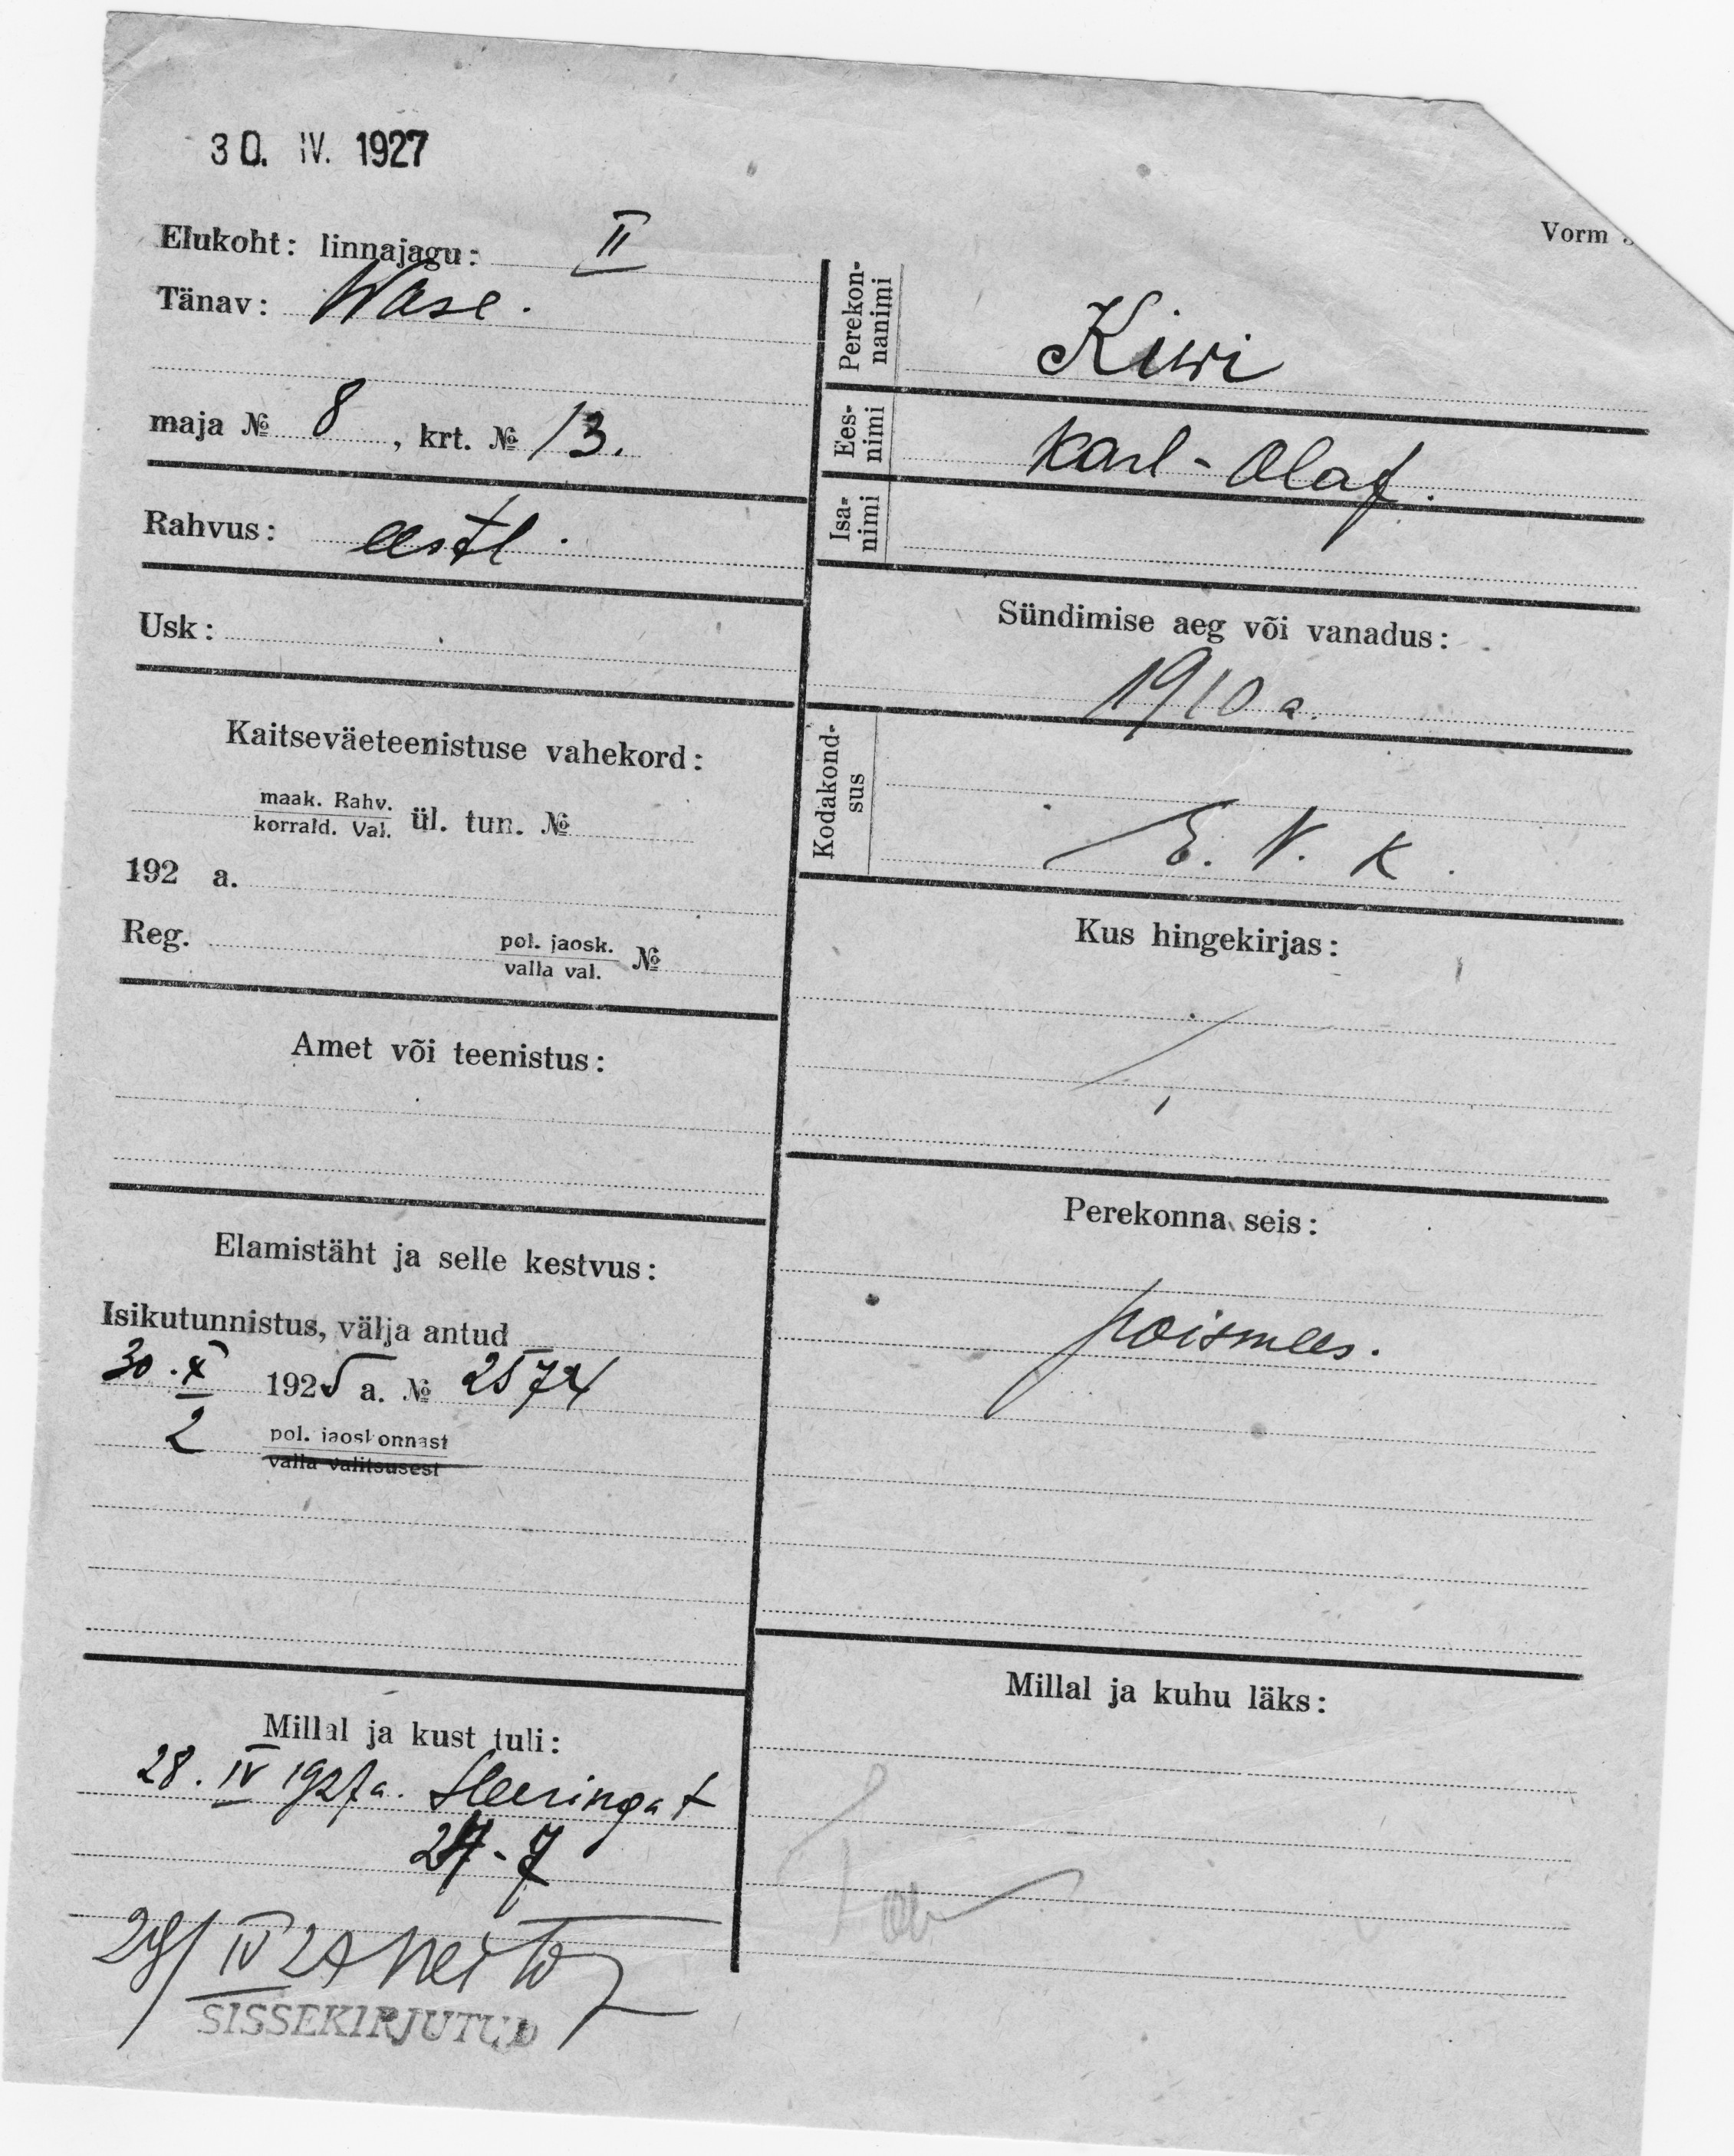 30. IV. 1927
Vorm
Elukoht: linnajagu: II
Tänav: Wase.
maja № 8, krt. № 13.
Rahvus: eestl.
Usk:
Kaitseväeteenistuse vahekord:
maak. Rahv.
korrald. Val. ül. tun. №
192 a.
Reg. pol. jaosk.
valla val. №
Amet või teenistus:
Elamistäht ja selle kestvus:
Isikutunnistus, välja antud
30.X 1925 a. № 2574
2 pol. jaoskonnast
valla valitsusest
Millal ja kust tuli:
28. IV 1927 a. Heeringa t
27-7
29/IV 27
SISSEKIRJUTUD
Perekon-
nanimi
Kiwi
Ees-
nimi
Karl-Olaf.
Isa-
nimi
Sündimise aeg või vanadus:
1910 a.
Kodakond-
sus
E. V. K.
Kus hingekirjas:
Perekonna seis:
poismees.
Millal ja kuhu läks: